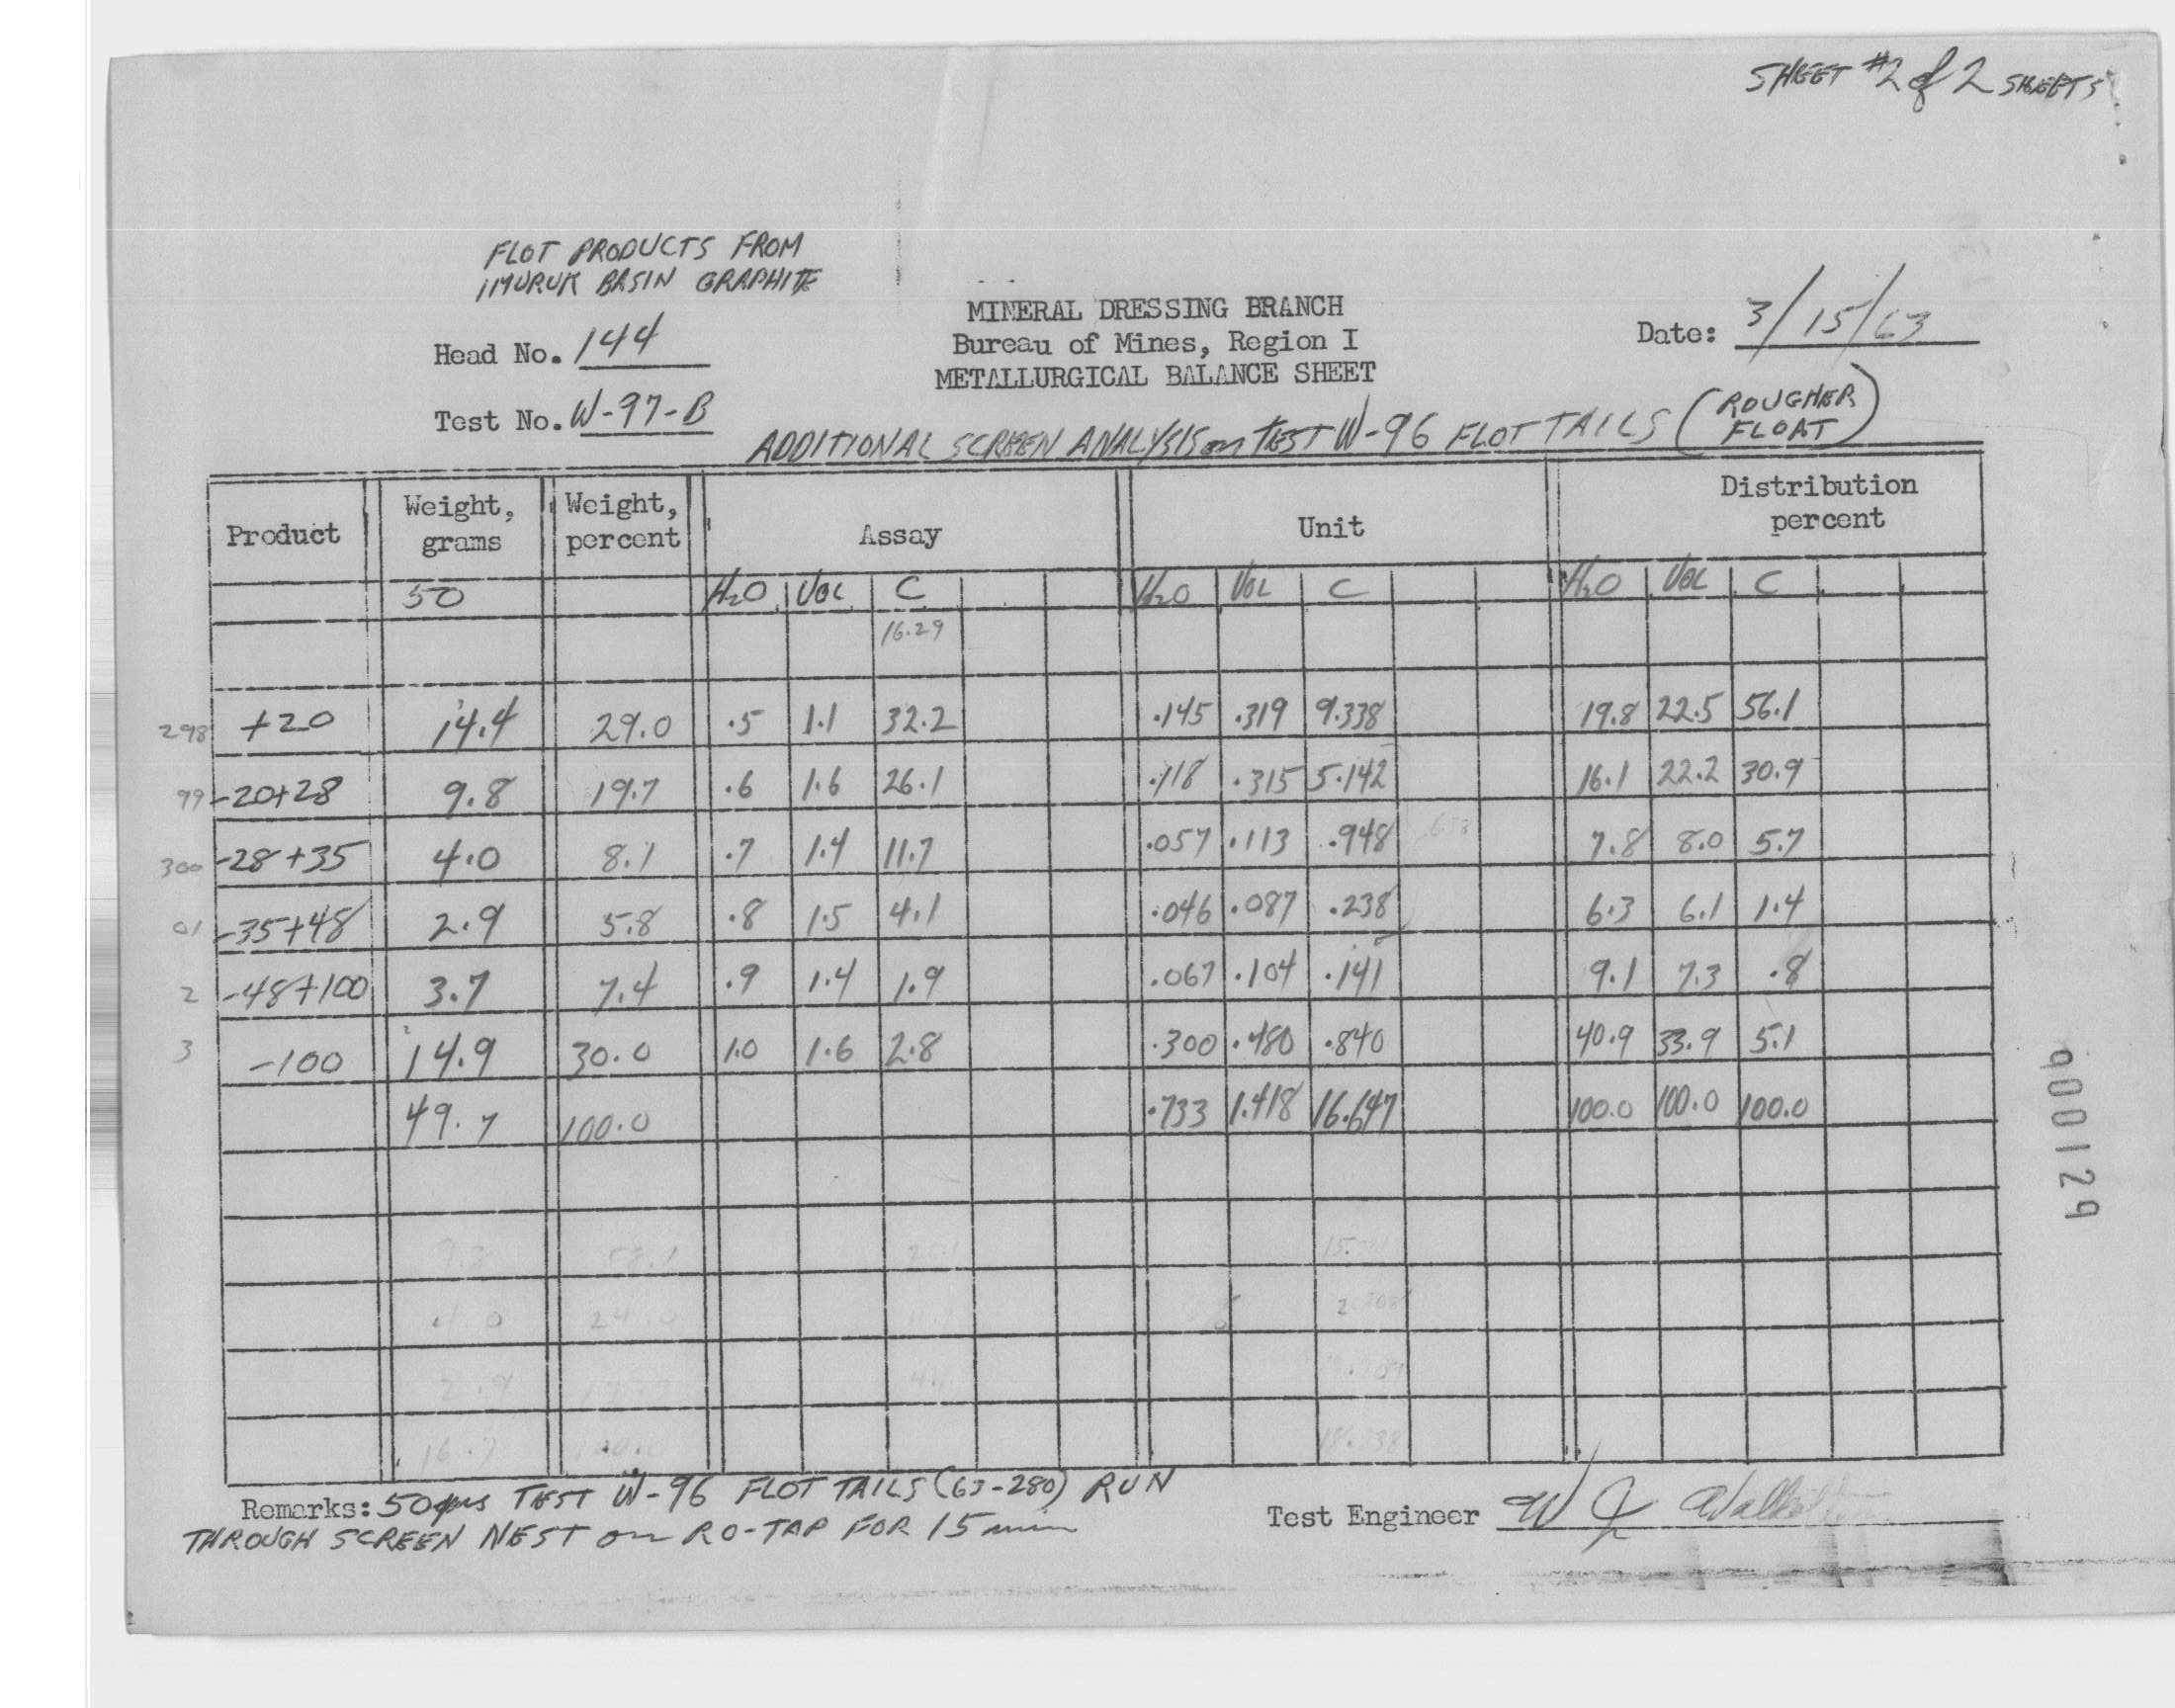 SHEET #2 of 2 SHEETS
FLOT PRODUCTS FROM
IMURUK BASIN GRAPHITE
MINERAL DRESSING BRANCH
Bureau of Mines, Region I
METALLURGICAL BALANCE SHEET
Date: 3/15/63
Head No. 144
Test No. W-97-B
ADDITIONAL SCREEN ANALYSIS on TEST W-96 FLOT TAILS (ROUGHER FLOAT)
Product Weight, grams Weight, percent Assay Unit Distribution percent
50 H2O VOL C H2O VOL C H2O VOL C
16.29
298 +20 14.4 29.0 .5 1.1 32.2 .145 .319 9.338 19.8 22.5 56.1
99 -20+28 9.8 19.7 .6 1.6 26.1 .118 .315 5.142 16.1 22.2 30.9
300 -28+35 4.0 8.1 .7 1.4 11.7 .057 .113 .948 7.8 8.0 5.7
01 -35+48 2.9 5.8 .8 1.5 4.1 .046 .087 .238 6.3 6.1 1.4
2 -48+100 3.7 7.4 .9 1.4 1.9 .067 .104 .141 9.1 7.3 .8
3 -100 14.9 30.0 1.0 1.6 2.8 .300 .480 .840 40.9 33.9 5.1
49.7 100.0 .733 1.418 16.647 100.0 100.0 100.0
900129
Remarks: 50 gms TEST W-96 FLOT TAILS (63-280) RUN
THROUGH SCREEN NEST on RO-TAP FOR 15 min
Test Engineer W